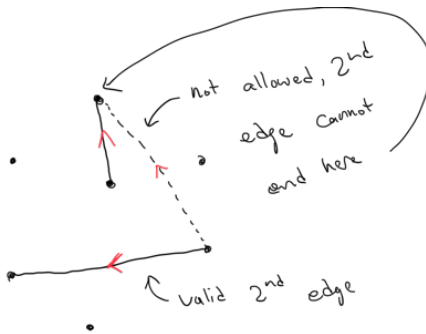 not allowed, 2nd
edge cannot
end here
valid 2nd edge